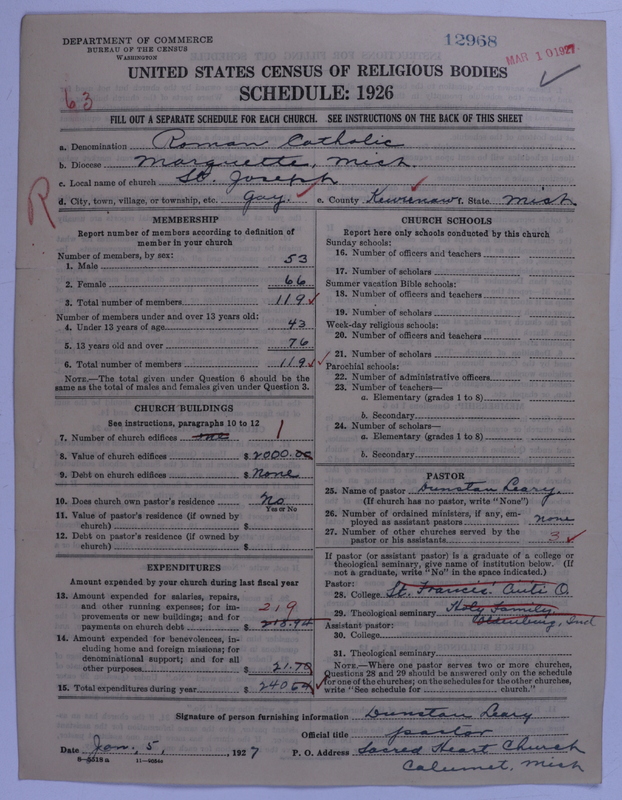 DEPARTMENT OF COMMERCE
BUREAU OF THE CENSUS
WASHINGTON
12968
MAR 10 1927
UNITED STATES CENSUS OF RELIGIOUS BODIES
SCHEDULE: 1926
63
FILL OUT A SEPARATE SCHEDULE FOR EACH CHURCH. SEE INSTRUCTIONS ON THE BACK OF THIS SHEET
a. Denomination Roman Catholic
b. Diocese Marquette, Mich.
c. Local name of church St. Joseph
R
d. City, town, village, or township, etc. Gay. e. County Keweenaw. State Mich
MEMBERSHIP
Report number of members according to definition of
member in your church
Number of members, by sex:
1. Male 53
2. Female 66
3. Total number of members 119
Number of members under and over 13 years old:
4. Under 13 years of age 43
5. 13 years old and over 76
6. Total number of members 119
NOTE.—The total given under Question 6 should be the
same as the total of males and females given under Question 3.
CHURCH BUILDINGS
See instructions, paragraphs 10 to 12
7. Number of church edifices one 1
8. Value of church edifices $ 2000.00
9. Debt on church edifices $ None
10. Does church own pastor's residence No
Yes or No
11. Value of pastor's residence (if owned by
church) $
12. Debt on pastor's residence (if owned by
church) $
EXPENDITURES
Amount expended by your church during last fiscal year
13. Amount expended for salaries, repairs,
and other running expenses; for im-
provements or new buildings; and for
payments on church debt $ 218.94 219
14. Amount expended for benevolences, in-
cluding home and foreign missions; for
denominational support; and for all
other purposes $ 21.70
15. Total expenditures during year $ 240.64
CHURCH SCHOOLS
Report here only schools conducted by this church
Sunday schools:
16. Number of officers and teachers
17. Number of scholars
Summer vacation Bible schools:
18. Number of officers and teachers
19. Number of scholars
Week-day religious schools:
20. Number of officers and teachers
21. Number of scholars
Parochial schools:
22. Number of administrative officers
23. Number of teachers—
a. Elementary (grades 1 to 8)
b. Secondary
24. Number of scholars—
a. Elementary (grades 1 to 8)
b. Secondary
PASTOR
25. Name of pastor Dunstan Leary.
(If church has no pastor, write "None")
26. Number of ordained ministers, if any, em-
ployed as assistant pastors none
27. Number of other churches served by the
pastor or his assistants 3
If pastor (or assistant pastor) is a graduate of a college or
theological seminary, give name of institution below. (If
not a graduate, write "No" in the space indicated.)
Pastor:
28. College St. Francis' Cinti O.
29. Theological seminary Holy Family
Oldenburg, Ind
Assistant pastor:
30. College
31. Theological seminary
NOTE.—Where one pastor serves two or more churches,
Questions 28 and 29 should be answered only on the schedule
for one of the churches; on the schedules for the other churches,
write "See schedule for church."
Signature of person furnishing information Dunstan Leary
Official title pastor
Date Jan. 5, 1927 P. O. Address Sacred Heart Church
8-5518a
Calumet, Mich